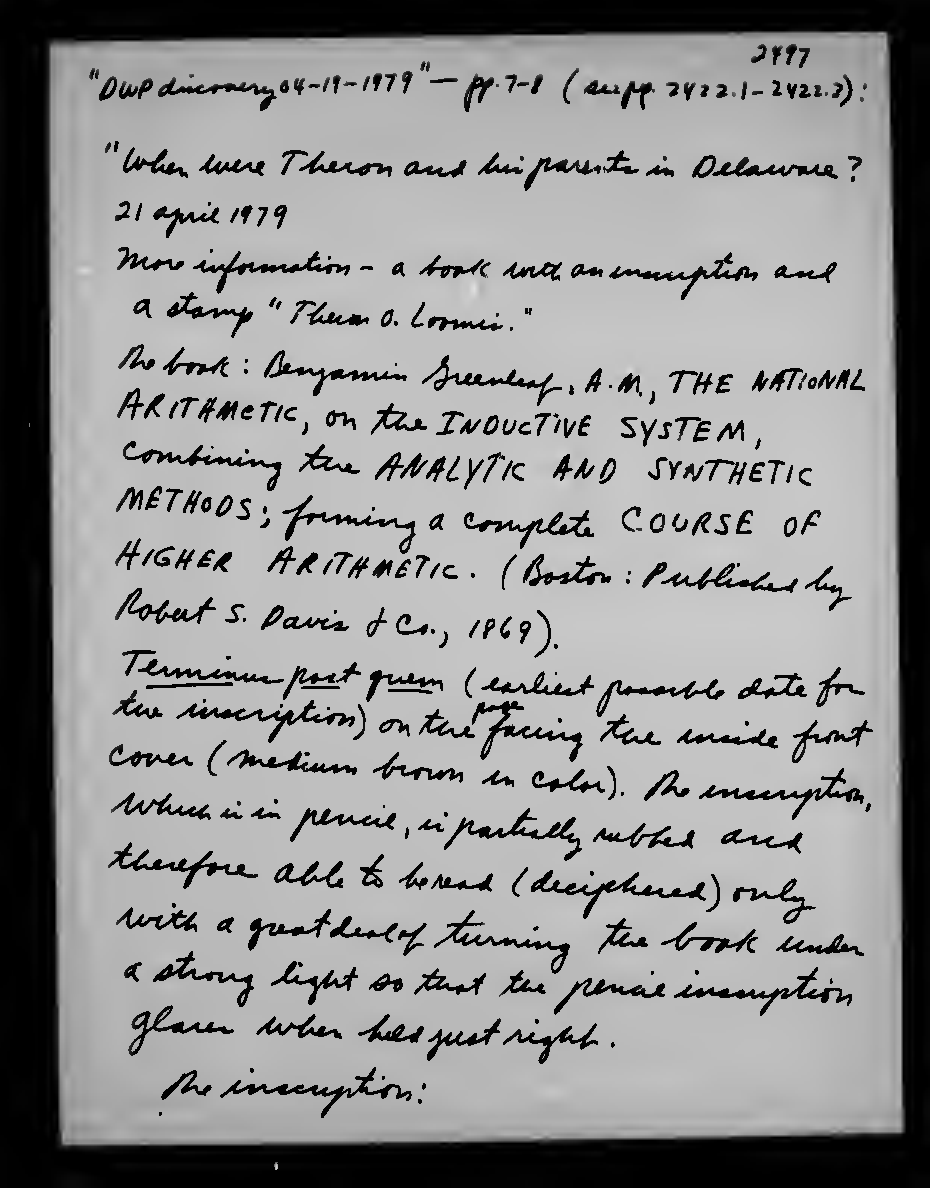 2497
"DWP discovery 04-19-1979" — pp. 7-8 (see pp. 2422.1-2422.2):
"When were Theron and his parents in Delaware?
21 april 1979
More information - a book with an inscription and
a stamp "Theron O. Loomis."
The book: Benjamin Greenleaf, A.M., THE NATIONAL
ARITHMETIC, on the INDUCTIVE SYSTEM,
combining the ANALYTIC AND SYNTHETIC
METHODS; forming a complete COURSE OF
HIGHER ARITHMETIC. (Boston: Published by
Robert S. Davis & Co., 1869).
Terminus post quem (earliest possible date for
the inscription) on the page facing the inside front
cover (medium brown in color). The inscription,
which is in pencil, is partially rubbed and
therefore able to be read (deciphered) only
with a great deal of turning the book under
a strong light so that the pencil inscription
glares when held just right.
The inscription: